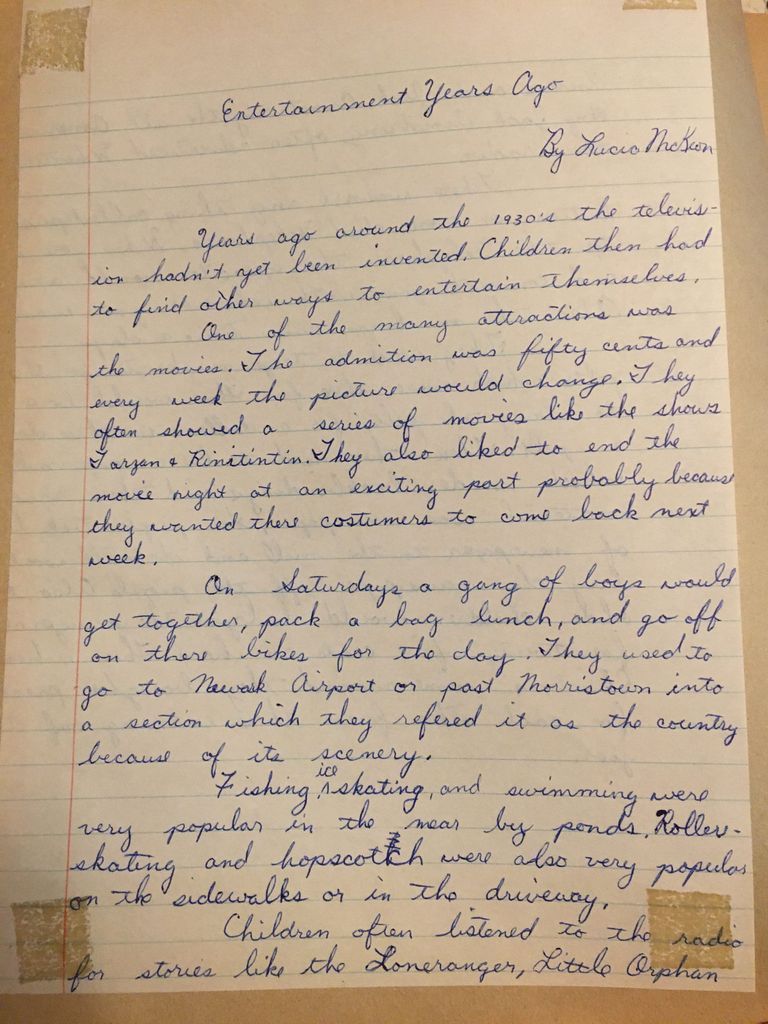 Entertainment Years Ago
By Lucia McKeon
Years ago around the 1930's the televis-
ion hadn't yet been invented. Children then had
to find other ways to entertain themselves.
One of the many attractions was
the movies. The admition was fifty cents and
every week the picture would change. They
often showed a series of movies like the shows
Tarzan & Rinstintin. They also liked to end the
movie right at an exciting part probably because
they wanted there costumers to come back next
week.
On Saturdays a gang of boys would
get together, pack a bag lunch, and go off
on there bikes for the day. They used to
go to Newark Airport or past Morristown into
a section which they refered it as the country
because of its scenery.
Fishing, ice skating, and swimming were
very popular in the near by ponds. Roller-
skating and hopscotch were also very popular
on the sidewalks or in the driveway.
Children often listened to the radio
for stories like the Loneranger, Little Orphan